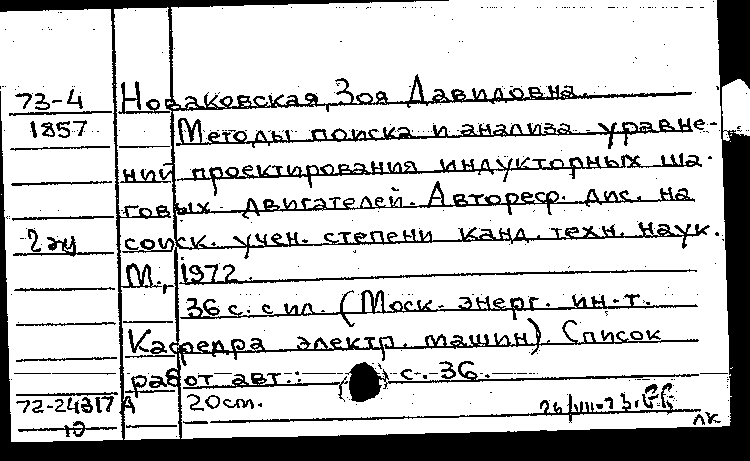 73-4 Новаковская, Зоя Давидовна.
1857 Методы поиска и анализа уравне-
ний проектирования индукторных ша-
говых двигателей. Автореф. дис. на
2 эк соиск. учен. степени канд. техн. наук.
М., 1972.
36 с. с ил. (Моск. энерг. ин-т.
Кафедра электр. машин). Список
работ авт.: с. 36.
72-24317 А 20 см.
10 ЛК